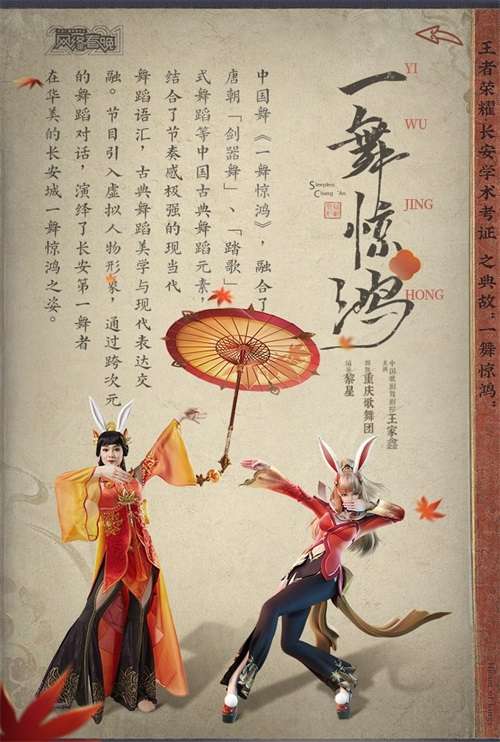 王者荣耀长安学术考证 之典故:一舞惊鸿:
一舞惊鸿
YI
WU
JING
HONG
Sleepless
Chang 'An
中国歌剧舞剧院
主演 王家鑫
重庆歌舞团
黎星
中国舞《一舞惊鸿》,融合了
唐朝「剑器舞」、「踏歌」
式舞蹈等中国古典舞蹈元素,
结合了节奏感极强的现当代
舞蹈语汇,古典舞蹈美学与现代表达交
融。节目引入虚拟人物形象,通过跨次元
的舞蹈对话,演绎了长安第一舞者
在华美的长安城一舞惊鸿之姿。
网络春晚